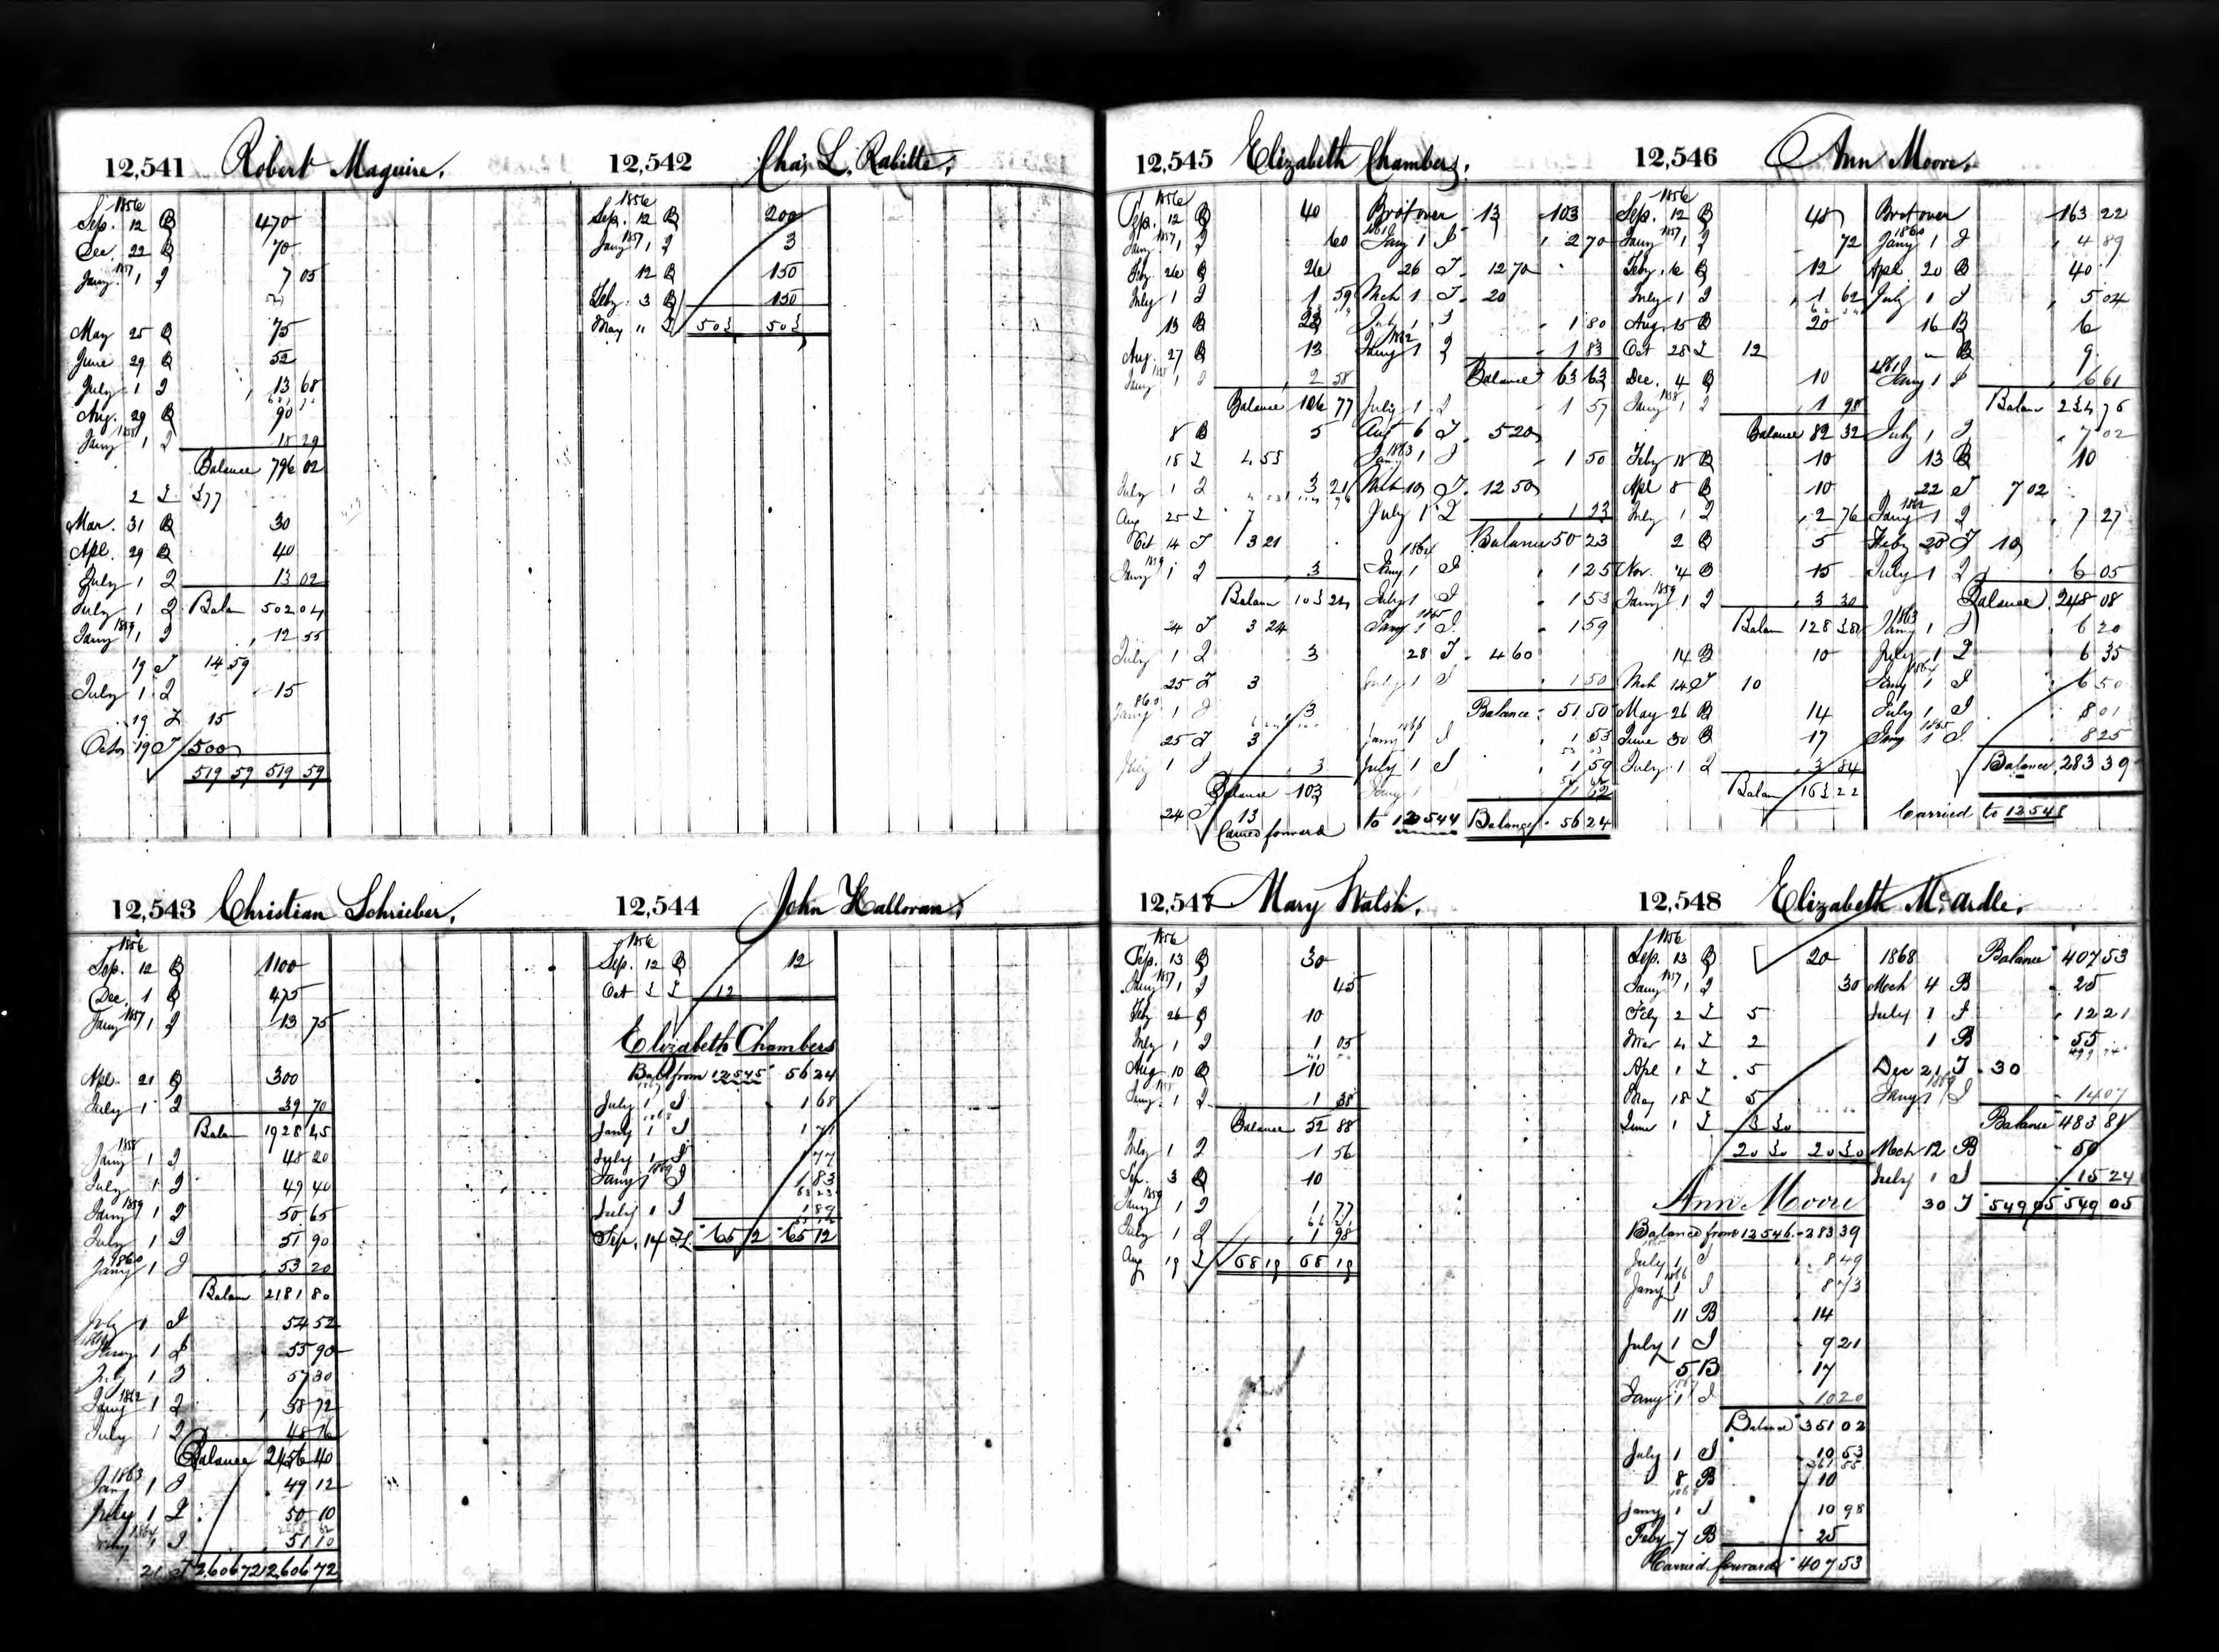 12,541 Robert Maguire.
1856
Sep. 12 B 470
Dec. 22 B 70
Jany 1857 1 I 7 05
May 25 B 75
June 29 B 52
July 1 I 13 68
Aug. 29 B 90
Jany 1858 1 I 18 29
Balance 796 02
2 I 377
Mar. 31 B 30
Apl. 29 B 40
July 1 I 13 02
July 1 I Balan 502 04
Jany 1859 1 I 12 55
19 I 14 59
July 1 I 15
19 I 15
Octo 19 I 500
519 59 519 59
12,542 Chas. L. Rabitte.
1856
Sep. 12 B 200
Jany 1857 1 I 3
12 B 150
Feby. 3 B 150
May " I 503 503
12,543 Christian Schrieber.
1856
Sep. 12 B 1100
Dec. 1 B 475
Jany 1857 1 I 13 75
Apl. 21 B 300
July 1 I 39 70
Balan 1928 45
Jany 1858 1 I 48 20
July 1 I 49 40
Jany 1859 1 I 50 65
July 1 I 51 90
Jany 1860 1 I 53 20
Balan 2181 80
July 1 I 54 52
Jany 1861 1 I 55 90
July 1 I 57 30
Jany 1862 1 I 58 72
July 1 I 48 16
Balance 2456 40
Jany 1863 1 I 49 12
July 1 I 50 10
1864 1 I 51 10
21 I 2,606 72 2,606 72
12,544 John Halloran.
1856
Sep. 12 B 12
Oct 3 I 12
Elizabeth Chambers
Bal from 12545 56 24
July 1 I 1 68
Jany 1868 1 I 1 71
July 1 I 1 77
Jany 1869 1 I 1 83
July 1 I 1 89
Sep. 14 I 65 12 65 12
12,545 Elizabeth Chambers.
1856
Sep. 12 B 40
Jany 1857 1 I 60
Feby 26 B 26
July 1 I 1 59
13 B 23
Aug. 27 B 13
Jany 1858 1 I 2 58
Balance 106 77
8 B 5
15 I 4 53
July 1 I 3 21
Aug 25 I 7
Oct 14 I 3 21
Jany 1859 1 I 3
Balan 103 24
24 I 3 24
July 1 I 3
25 I 3
Jany 1860 1 I 3
25 I 3
July 1 I 3
Balance 103
24 I 13
Carried forward
Brot over 13 103
Jany 1861 1 I 2 70
26 I 12 70
Mch 1 I 20
July 1 I 1 80
Jany 1862 1 I 1 83
Balance 63 63
July 1 I 1 57
Aug 6 I 5 20
Jany 1863 1 I 1 50
Mch 10 I 12 50
July 1 I 1 23
Balance 50 23
Jany 1864 1 I 1 25
July 1 I 1 53
Jany 1865 1 I 1 59
28 I 4 60
July 1 I 1 50
Balance 51 50
Jany 1866 1 I 1 53
July 1 I 1 59
Jany 1 62
to 12544 Balance 56 24
12,546 Ann Moore.
1856
Sep. 12 B 48
Jany 1857 1 I 72
Feby. 6 B 12
July 1 I 1 62
Aug. 15 B 20
Oct 28 I 12
Dec. 4 B 10
Jany 1858 1 I 1 98
Balance 82 32
Feby 18 B 10
Apl 8 B 10
July 1 I 2 76
2 B 5
Nov. 4 B 15
Jany 1859 1 I 3 30
Balan 128 38
14 B 10
Mch 14 I 10
May 26 B 14
June 30 B 17
July 1 I 3 84
Balan 163 22
Brot over 163 22
Jany 1860 1 I 4 89
Apl. 20 B 40
July 1 I 5 04
16 B 6
" B 9
Jany 1861 1 I 6 61
Balan 234 76
July 1 I 7 02
13 B 10
22 I 7 02
Jany 1862 1 I 7 27
Feby 28 I 10
July 1 I 6 05
Balance 248 08
Jany 1863 1 I 6 20
July 1 I 6 35
Jany 1864 1 I 6 50
July 1 I 8 01
Jany 1865 1 I 8 25
Balance 283 39
Carried to 12548
12,547 Mary Walsh.
1856
Sep. 13 B 30
Jany 1857 1 I 45
Feby 26 B 10
July 1 I 1 05
Aug. 10 B 10
Jany. 1858 1 I 1 38
Balance 52 88
July 1 I 1 56
Sep. 3 B 10
Jany 1859 1 I 1 77
July 1 I 1 98
Aug 19 I 68 19 68 19
12,548 Elizabeth McArdle.
1856
Sep. 13 B 20
Jany 1857 1 I 30
Feby 2 I 5
Mar 4 I 2
Apl 1 I 5
May 18 I 5
June 1 I 3 30
20 30 20 30
Ann Moore
Balance from 12546 283 39
July 1 I 8 49
Jany 1866 1 I 8 73
11 B 14
July 1 I 9 21
5 B 17
Jany 1867 1 I 10 20
Balance 351 02
July 1 I 10 53
8 B 10
Jany 1868 1 I 10 98
Feby 7 B 25
Carried forward 407 53
1868 Balance 407 53
Mch 4 B 25
July 1 I 12 21
1 B 55
Dec 21 I 30
Jany 1869 1 I 14 07
Balance 483 81
Mch 12 B 50
July 1 I 15 24
30 I 549 05 549 05